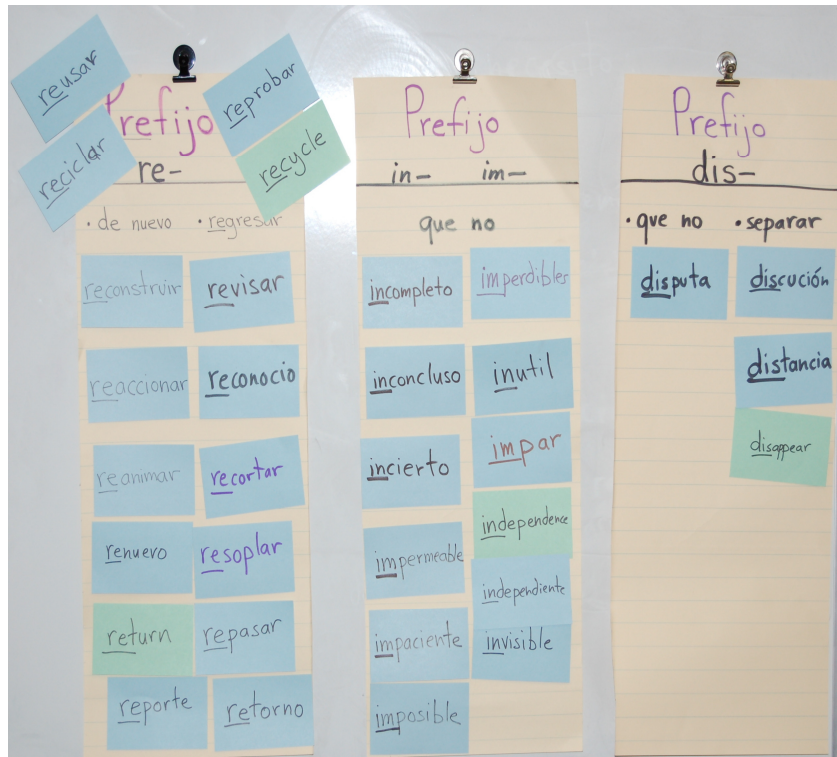 reusar
reciclar
reprobar
recycle
Prefijo
re-
• de nuevo • regresar
reconstruir
revisar
reaccionar
reconocio
reanimar
recortar
renuevo
resoplar
return
repasar
reporte
retorno
Prefijo
in- im-
que no
incompleto
imperdibles
inconcluso
inutil
incierto
impar
independence
impermeable
independiente
impaciente
invisible
imposible
Prefijo
dis-
• que no • separar
disputa
discución
distancia
disappear